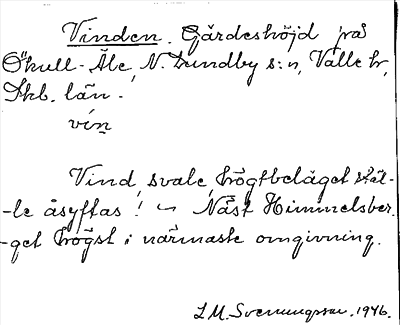 Vinden. Gärdeshöjd på
Ökull-Åle, N. Lundby s:n, Valle hr,
Skb. län.
vín
Vind, svale, högtbeläget stäl-
-le åsyftas! ~ Näst Himmelsber-
-get högst i närmaste omgivning.
L.M. Svenungsson. 1946.